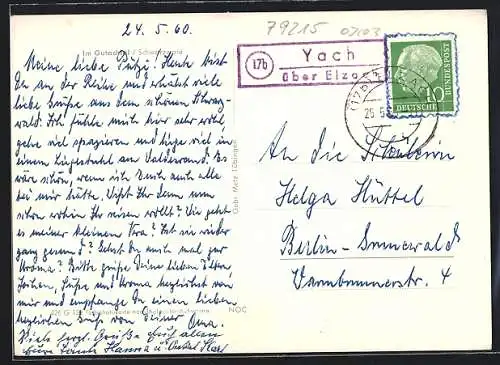 24. 5. 60.
79215
Im Gutachtal / Schwarzwald
Meine liebe Putzi! Heute bist
Du an der Reihe und erhälst viele
liebe Grüße aus dem schönen Schwarz-
wald. Ich fühle mich hier sehr wohl,
gehe viel spazieren und liege viel in
einem Liegestuhl am Waldesrand. Es
wäre schön, wenn ich Euch auch alle
bei mir hätte. Wißt Ihr denn nun
schon wohin Ihr reisen wollt? Wie geht
es meiner kleinen Ira? Ist sie wieder
ganz gesund? Gehst Du auch mal zur
Uroma? Bitte grüße Deine lieben Eltern,
und Uroma herzlichst von
mir und empfange Du einen lieben
herzlichen Gruß von Deiner Oma.
Viele herzl. Grüße Euch allen
Eure Tante Hanna u. Onkel
Gebr. Metz Tübingen
NOC
17b
Yach
über Elzach
DEUTSCHE BUNDESPOST
10
An die Schülerin
Helga Hüttel
Berlin-Grunewald
Warmbrunnerstr. 4